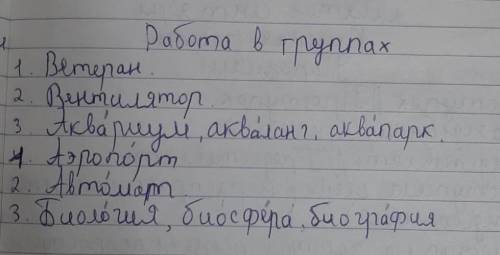 Работа в группах
1. Ветеран.
2. Вентилятор.
3 Аква́риум, аквала́нг, аквапа́рк.
4 Аэропо́рт
2. Автома́т
3. Биоло́гия, биосфе́ра, биогра́фия